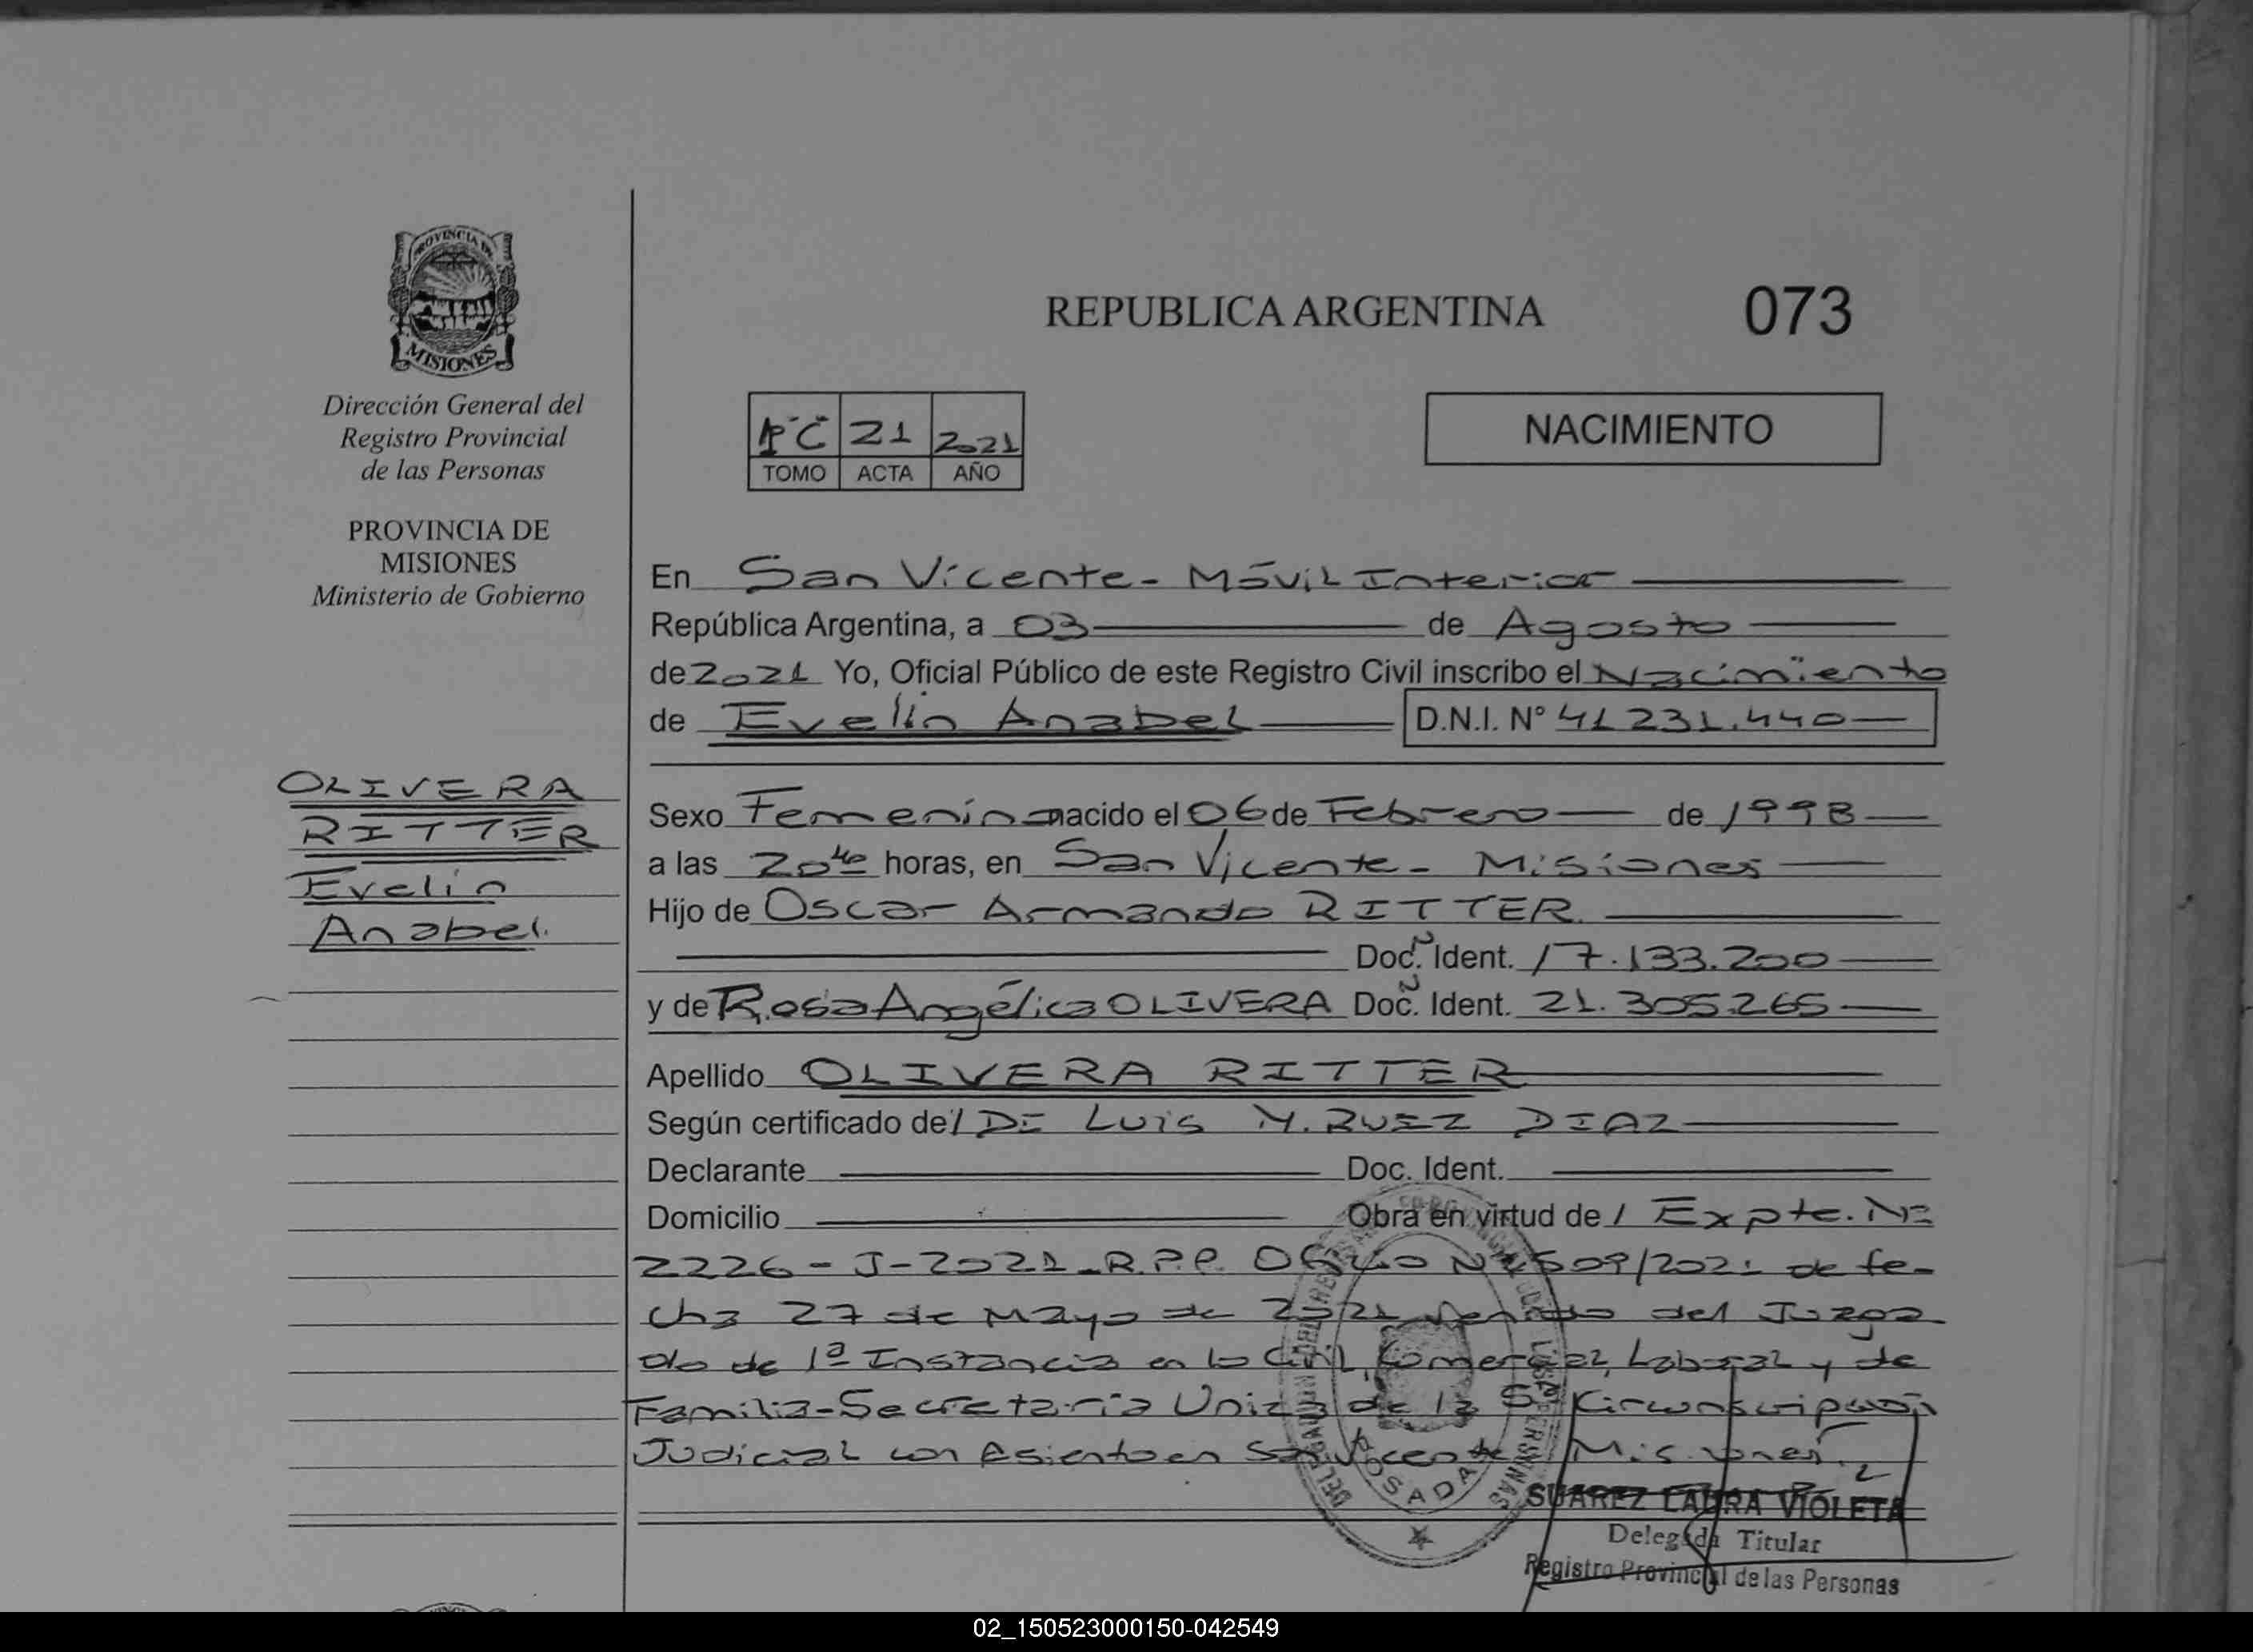 PROVINCIA DE
MISIONES
Dirección General del
Registro Provincial
de las Personas
PROVINCIA DE
MISIONES
Ministerio de Gobierno
OLIVERA
RITTER
Evelin
Anabel.
REPUBLICA ARGENTINA
073
21 2021
TOMO ACTA AÑO
NACIMIENTO
En San Vicente - Móvil Interior
República Argentina, a 03 de Agosto
de 2021 Yo, Oficial Público de este Registro Civil inscribo el Nacimiento
de Evelin Anabel D.N.I. N° 41 231.440
Sexo Femenino nacido el 06 de Febrero de 1998
a las 20 40 horas, en San Vicente - Misiones
Hijo de Oscar Armando RITTER.
Doc. Ident. 17.133.200
y de Rosa Angélica OLIVERA Doc. Ident. 21.305.265
Apellido OLIVERA RITTER
Según certificado de/ Luis DIAZ
Declarante Doc. Ident.
Domicilio Obra en virtud de / Expte. Nº
2226 - J - 2021 - R.P.P. Oficio 509/2021 de fe-
cha 27 de Mayo de 2021 del Juzga
do de 1ª Instancia en lo Civil, Comercial, Laboral y de
Familia - Secretaria Unica de la Circunscripción
Judicial con Asiento en San Vicente Misiones.
POSADAS
SUAREZ LAURA VIOLETA
Delegada Titular
Registro Provincial de las Personas
02_150523000150-042549